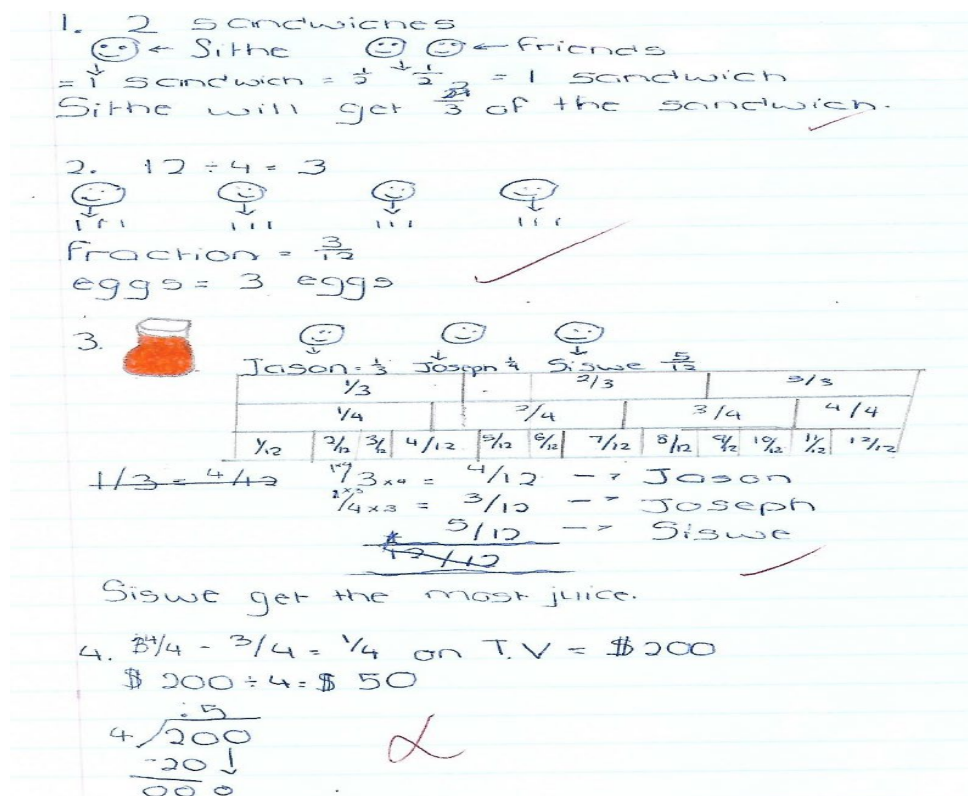 1. 2 sandwiches
← Sithe ← friends
= 1 sandwich = 1/2 1/2 = 1 sandwich
Sithe will get 2/3 of the sandwich.
2. 12 ÷ 4 = 3
fraction = 3/12
eggs = 3 eggs
3.
Jason = 1/3 Joseph 1/4 Siswe 5/12
1/3 2/3 3/3
1/4 2/4 3/4 4/4
1/12 2/12 3/12 4/12 5/12 6/12 7/12 8/12 9/12 10/12 11/12 12/12
1/3 = 4/12 1×4/3×4 = 4/12 → Jason
1×3/4×3 = 3/12 → Joseph
5/12 → Siswe
12/12
Siswe get the most juice.
4. 4/4 - 3/4 = 1/4 on T.V = $200
$ 200 ÷ 4 = $ 50
.5
4 200
-20 ↓
00 0